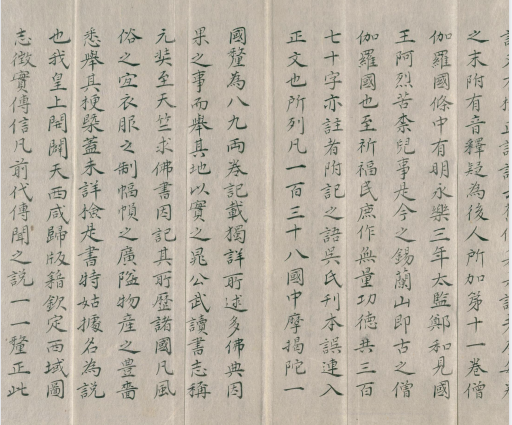 之末附有音釋疑為後人所加第十一卷僧
伽羅國條中有明永樂三年太監鄭和見國
王阿烈苦柰兒事是今之錫蘭山即古之僧
伽羅國也至祈福民庶作無量功德共三百
七十字亦註者附記之語吳氏刊本誤連入
正文也所列凡一百三十八國中摩揭陀一
國釐為八九兩卷記載獨詳所述多佛典因
果之事而舉其地以實之晁公武讀書志稱
元奘至天竺求佛書因記其所歷諸國凡風
俗之宜衣服之制幅幀之廣隘物產之豊嗇
悉舉其梗槩蓋未詳檢是書特姑據名為說
也我皇上開闢天西咸歸版籍欽定西域圖
志徵實傳信凡前代傳聞之說一一釐正此